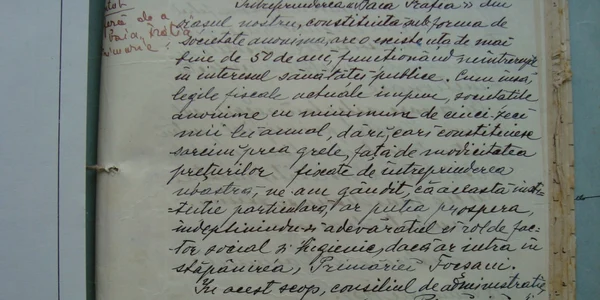 tură de a
Baia
Intreprinderea «Baia Trafia» din
orașul nostru, constituită sub forma de
societate anonimă, are o existență de mai
bine de 50 de ani, funcționând neîntrerupt
în interesul sănătatei publice. Cum însă
legile fiscale actuale impun, societatile
anonime cu minimum de cinci-zeci
mii lei anual, dări, cari constituiesc
sarcini prea grele, față de modicitatea
prețurilor fixate de întreprinderea
noastră, ne am gândit, că această insti-
tuție particulară, ar putea prospera,
îndeplinindu-și adevăratul ei rol de fac-
tor social și Higienic, dacă ar intra în
stăpânirea, Primăriei Focșani.
In acest scop, consiliul de administratie